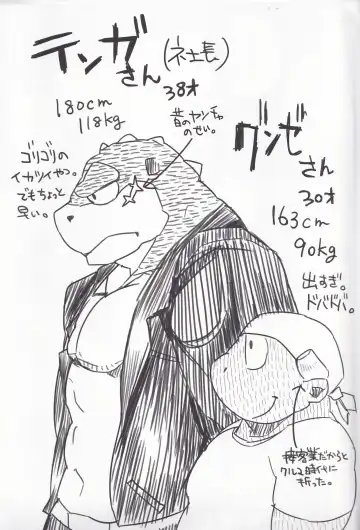 テンガさん(社長)
38才
180cm
118kg
昔のヤンチャ
のせい。
ゴリゴリの
イカツイやつ。
でもちょっと
早い。
グンゼさん
30才
163cm
90kg
出すぎ。
ドバドバ。
接客業だからと
クルマ時代に
折った。